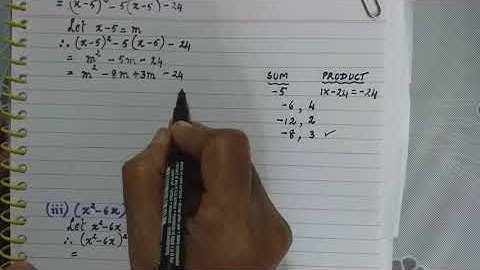 = (x-5)² - 5(x-5) - 24
Let x-5 = m
∴ (x-5)² - 5(x-5) - 24
= m² - 5m - 24
= m² - 8m + 3m - 24
SUM PRODUCT
-5 1x-24 = -24
-6, 4
-12, 2
-8, 3 ✓
(iii) (x²-6x)
Let x²-6x
∴ (x²-6x)²
=